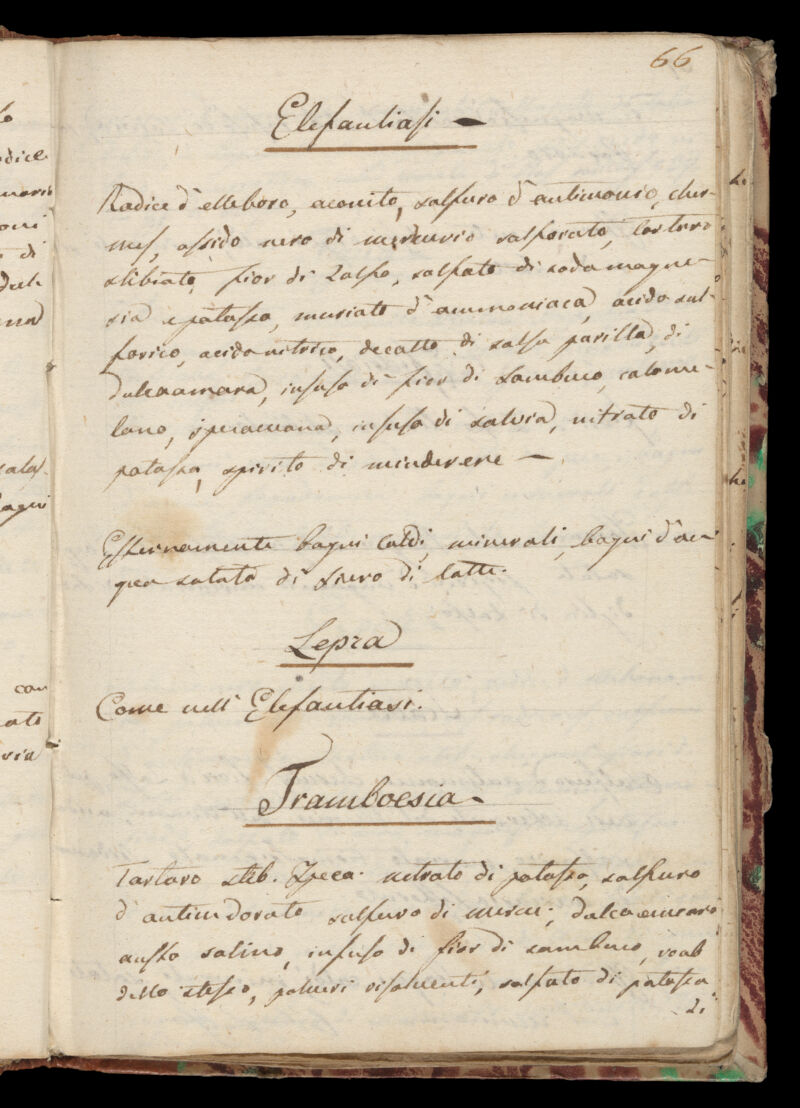 66
Elefantiasi
Radice d'elleboro, aconito, solfuro d'antimonio, cher-
mes, ossido nero di mercurio solforato, tartaro
stibiato, fior di Zolfo, solfato di soda magne-
sia e potassa, muriato d'ammoniaca, acido sul-
forico, acido nitrico, decotto di salsa pariglia, di
dulcamara, infuso di fior di sambuco, calome-
lano, ipecacuana, infuso di salvia, nitrato di
potassa, spirito di minderere
Esternamente bagni caldi, minerali, bagni d'ac-
qua salata di siero di latte.
Lepra
Come nell' Elefantiasi.
Framboesia
Tartaro stib. Ipeca. nitrato di potassa, solfuro
d'antim dorato solfuro di mercu., dulcamara
salino, infuso di fior di sambuco, roob
dello stesso, polveri risolventi, solfato di potassa
di